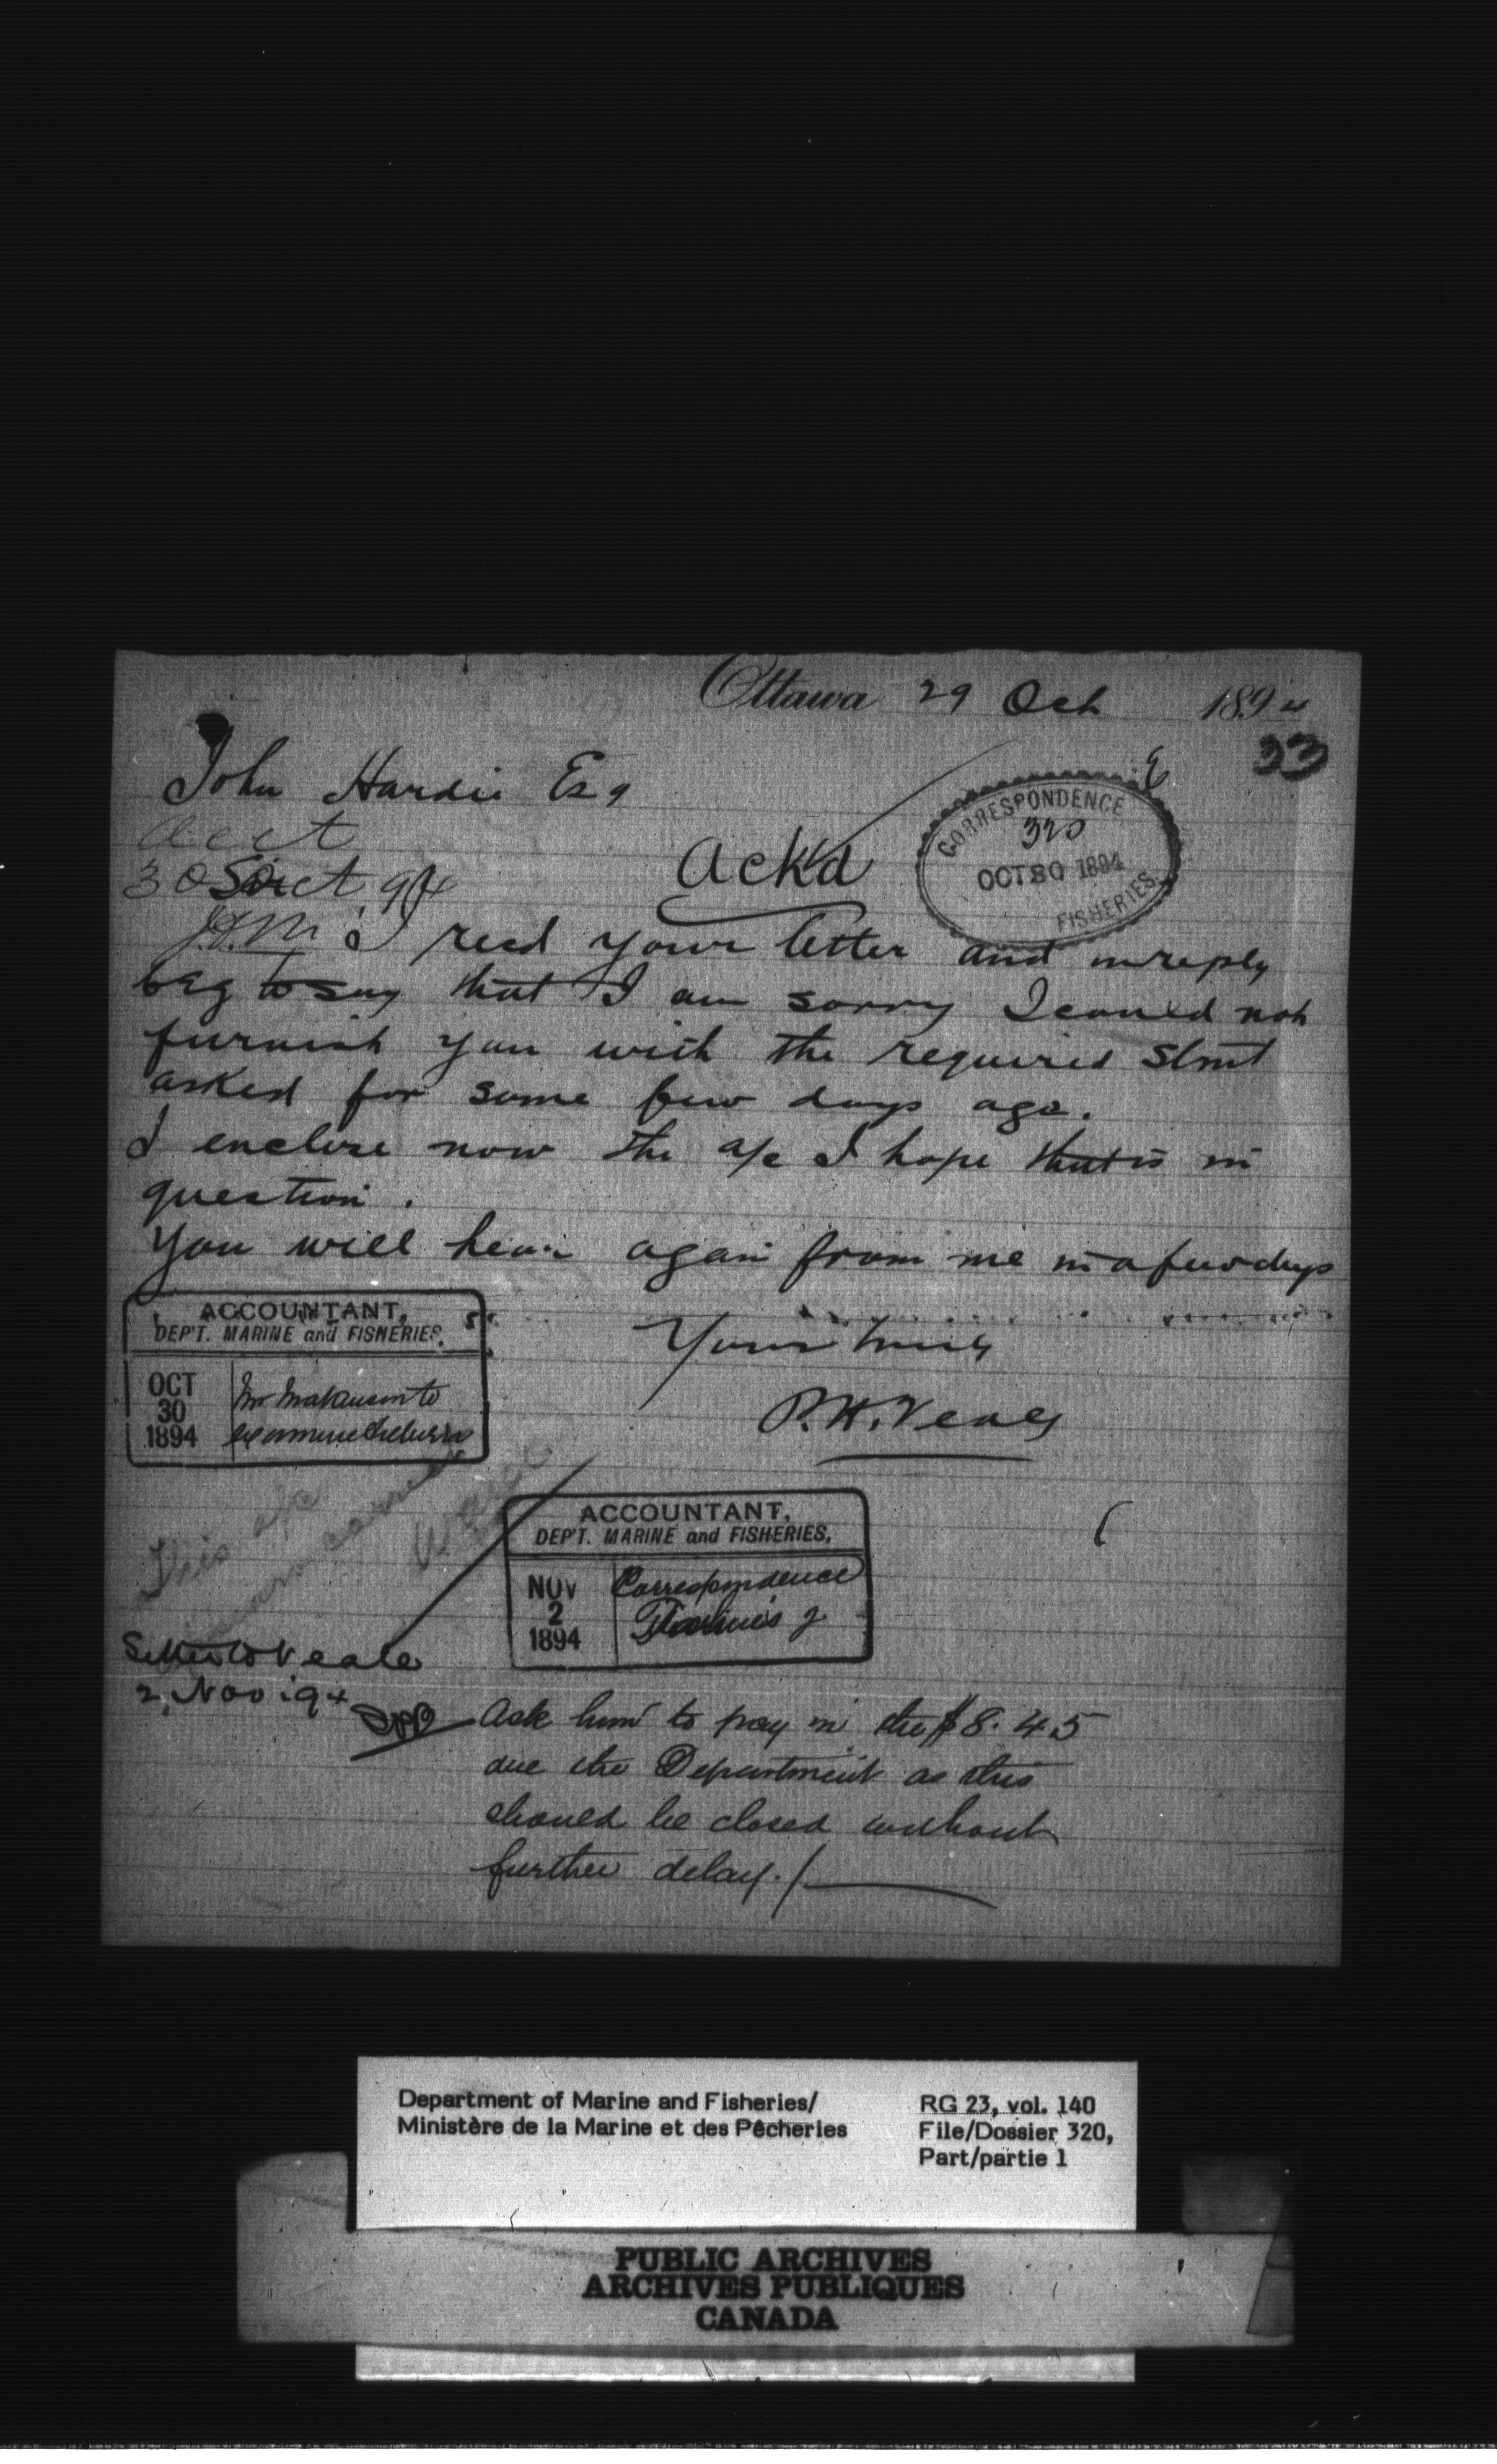 Ottawa 29 Oct 1894
33
John Hardie Esq
Acct
30 Oct 94
J.H.M
Sir
Ack'd
E
CORRESPONDENCE
320
OCT 30 1894
FISHERIES.
I recd your letter and in reply
beg to say that I am sorry I could not
furnish you with the required Stmt
asked for some few days ago.
I enclose now the a/c I hope that is in
question.
You will hear again from me in a few days
Yours truly
P.H. Veale
ACCOUNTANT,
DEP'T. MARINE and FISHERIES.
OCT
30
1894
Mr to
examine
This a/c
ACCOUNTANT,
DEP'T. MARINE and FISHERIES.
NOV
2
1894
Correspondence
Letter to Veale
2, Nov. 94
Ask him to pay in the $8.45
due the Department as this
should be closed without
further delay./
Department of Marine and Fisheries/
Ministère de la Marine et des Pêcheries
RG 23, vol. 140
File/Dossier 320,
Part/partie 1
PUBLIC ARCHIVES
ARCHIVES PUBLIQUES
CANADA